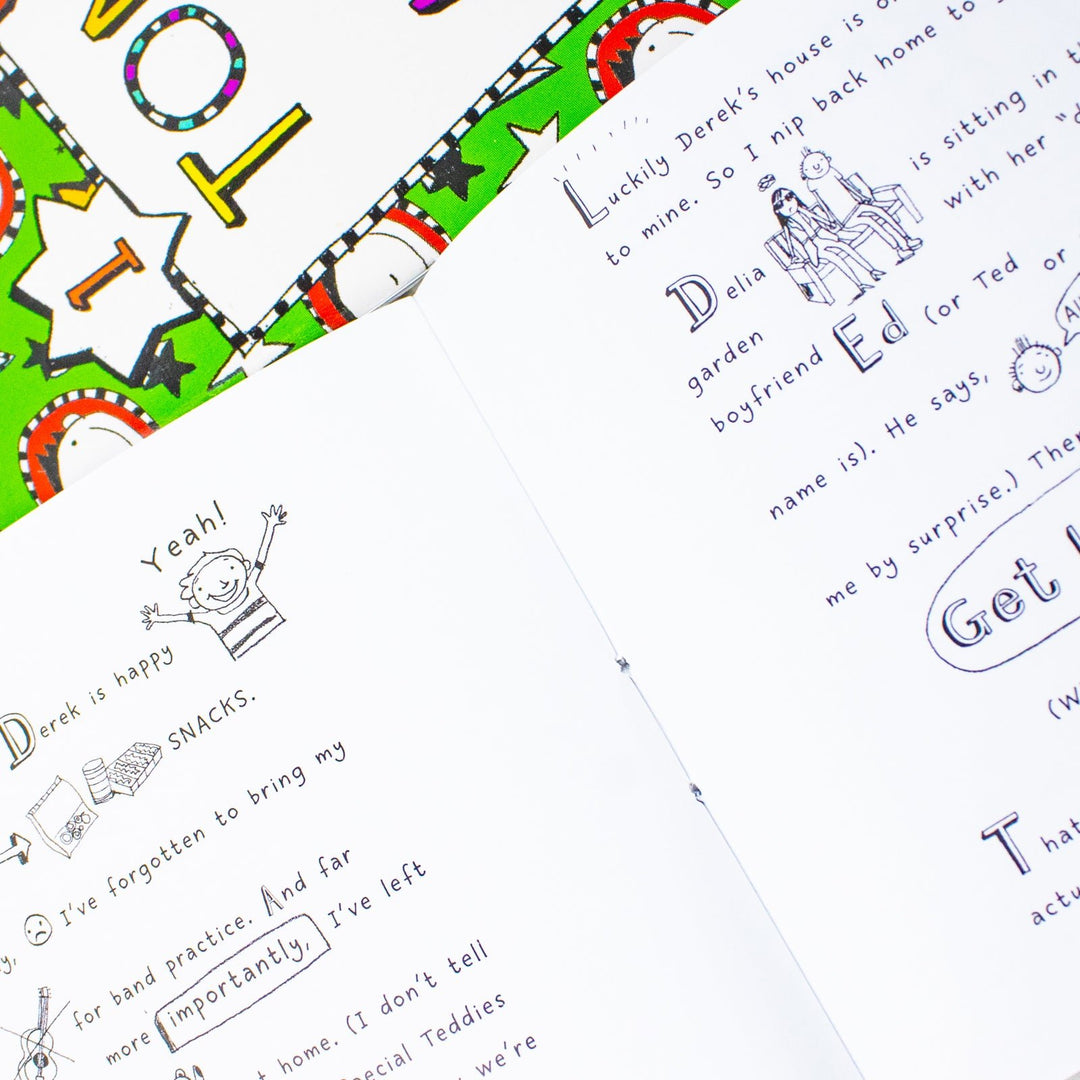 TO
1
Yeah!
Derek is happy
SNACKS.
I've forgotten to bring my
for band practice. And far
more importantly, I've left
home. (I don't tell
Teddies
we're
Luckily Derek's house is
to mine. So I nip back home to
Delia is sitting in
garden with her
boyfriend Ed (or Ted or
name is). He says,
me by surprise.) Then
Get